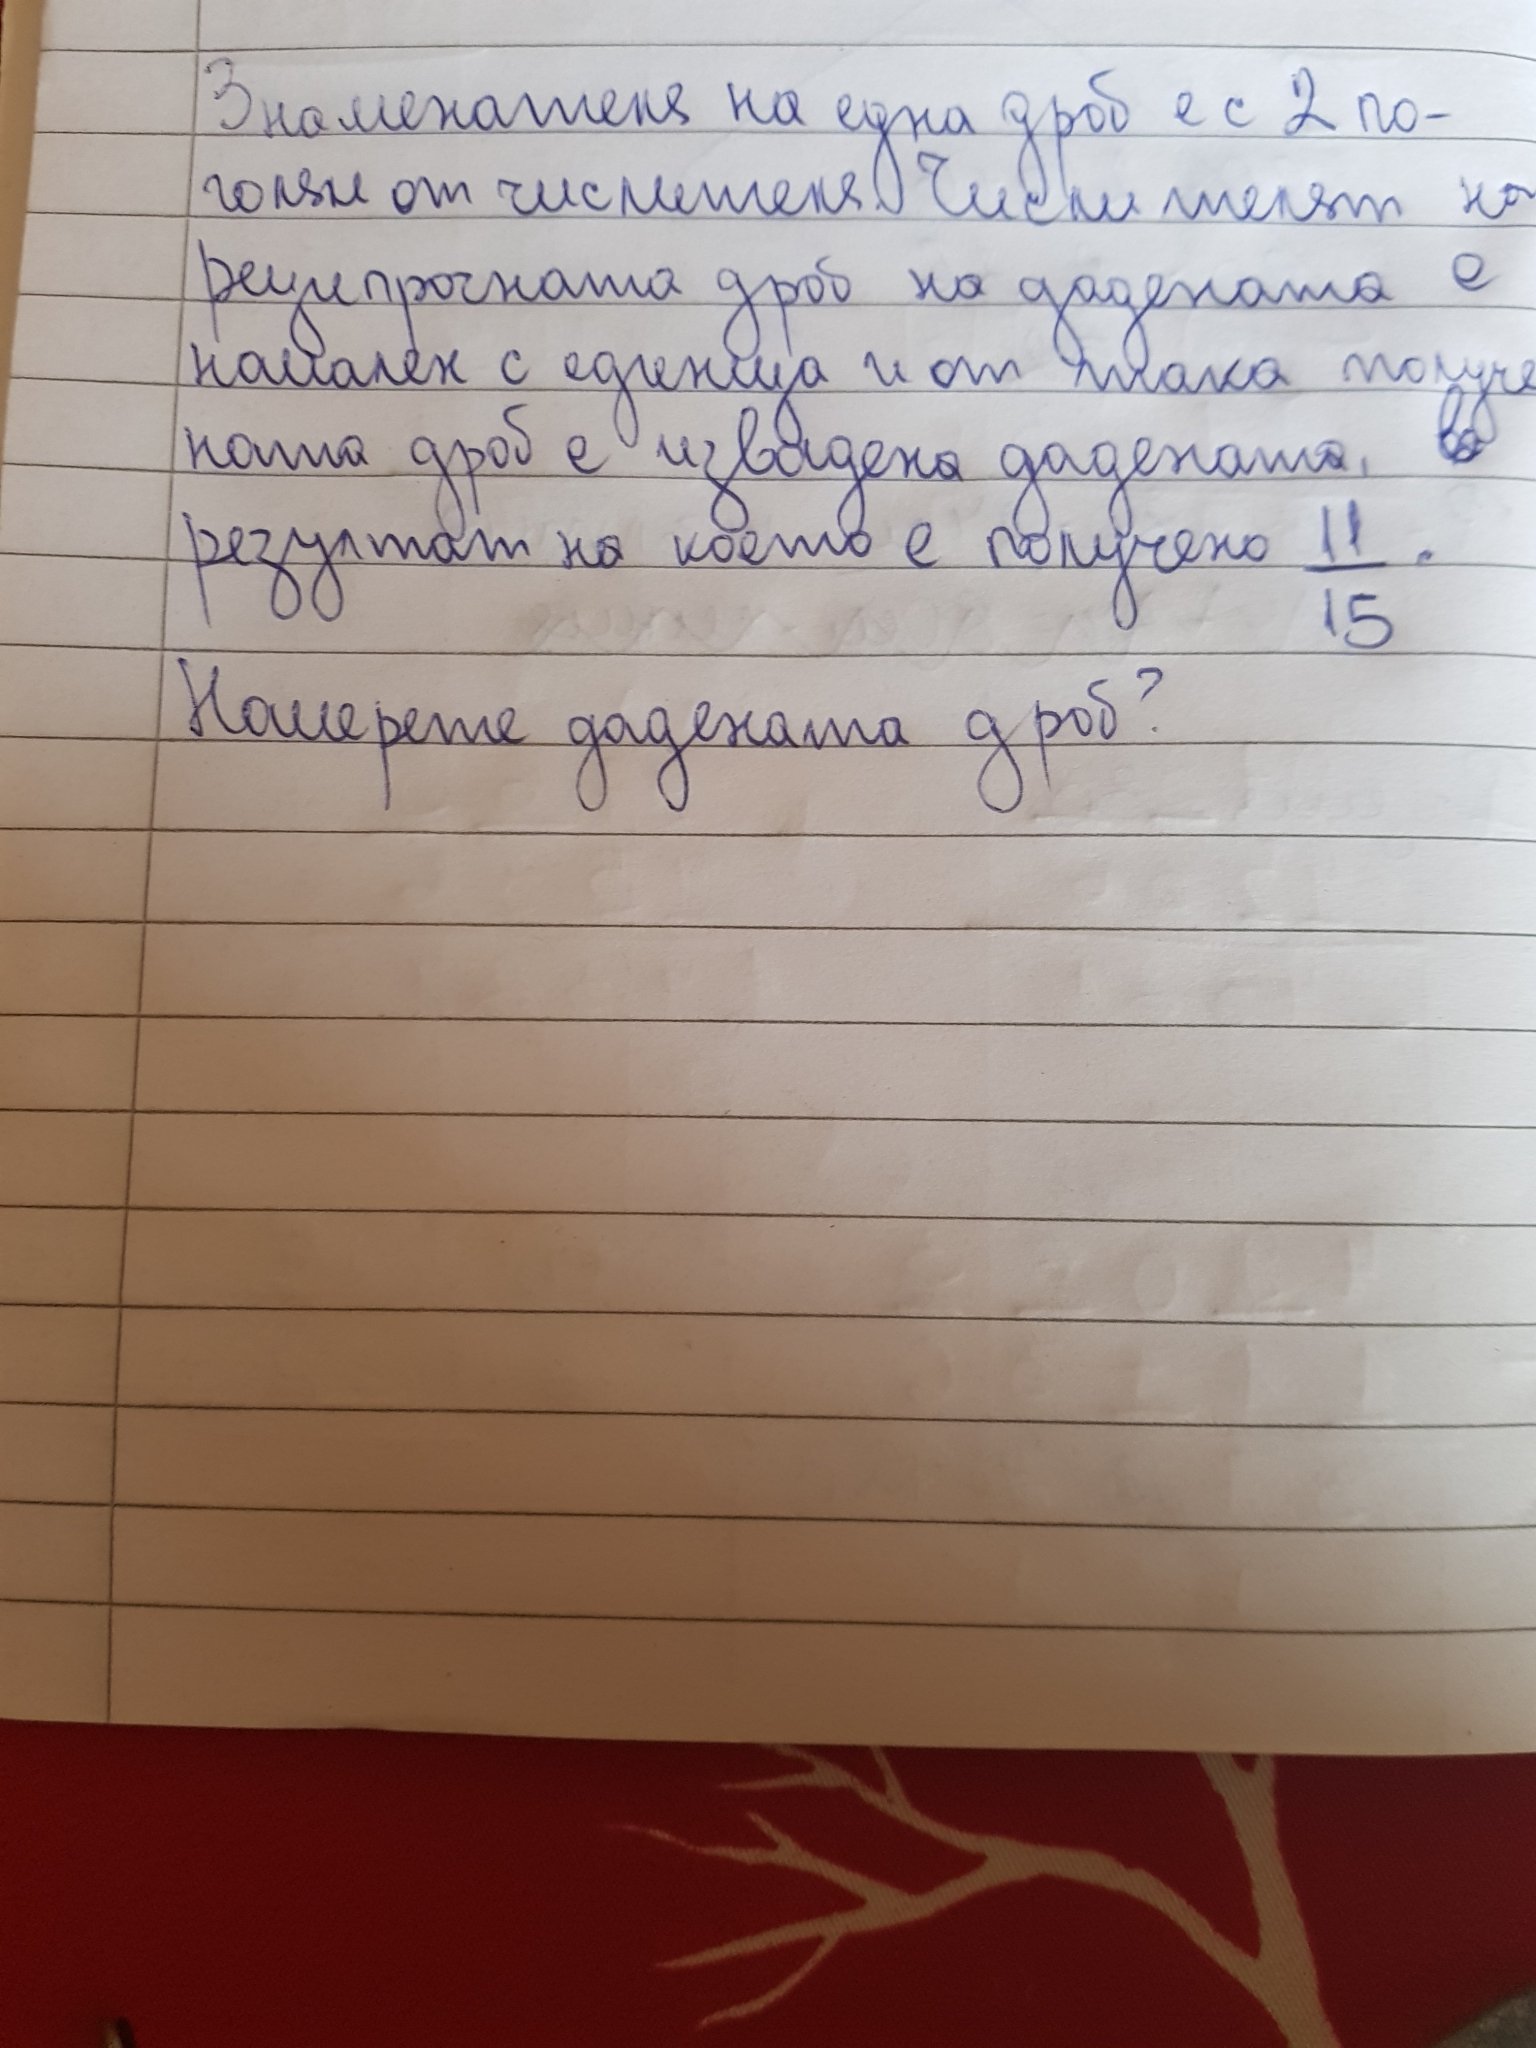 Знаменателя на една дроб е с 2 по-
голям от числителя. Числителят на
реципрочната дроб на дадената е
намален с единица и от така получе
ната дроб е извадена дадената, в
резултат на което е получено 11/15.
Намерете дадената дроб?